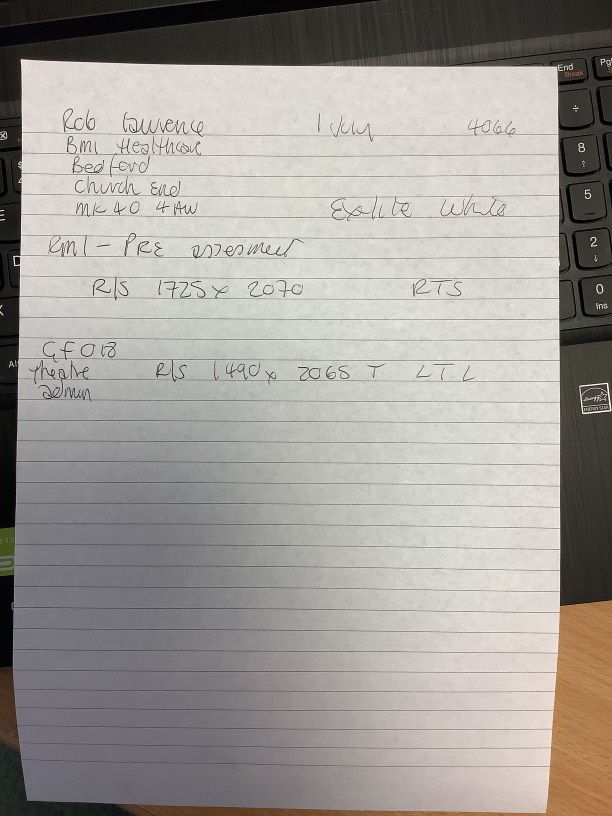 Rob Lawrence 1 July 4066
BMI Healthcare
Bedford
Church End
MK40 4AW Exelite White
RM1 - PRE assesment
R/S 1725 x 2070 RTS
GF018
Theatre R/S 1490 x 2065 T LTL
admin
End
Break
÷
8
5
2
0
Ins